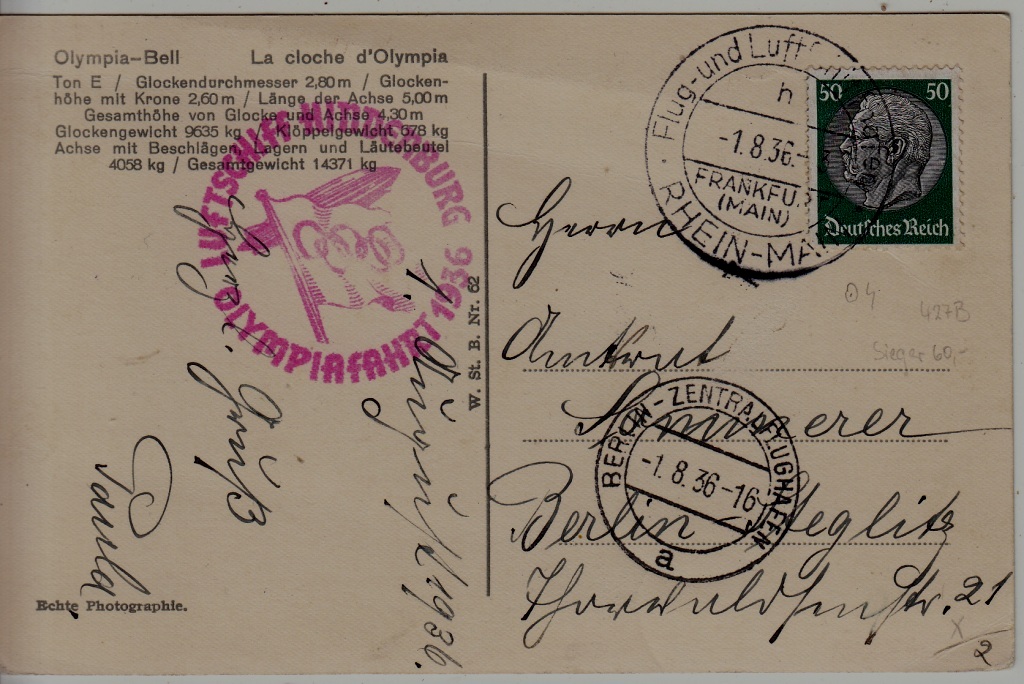 Olympia-Bell La cloche d'Olympia
Ton E / Glockendurchmesser 2,80 m / Glocken-
höhe mit Krone 2,60 m / Länge der Achse 5,00 m
Gesamthöhe von Glocke und Achse 4,30 m
Glockengewicht 9635 kg / Klöppelgewicht 578 kg
Achse mit Beschlägen, Lagern und Läutebeutel
4058 kg / Gesamtgewicht 14371 kg
LUFTSCHIFF HINDENBURG
OLYMPIAFAHRT 1936
1. August 1936.
Gruß
Paula
Echte Photographie.
W. St. B. Nr. 62
Flug- und Luft
h
-1.8.36-
FRANKFURT
(MAIN)
RHEIN-MAIN
50 50
Deutsches Reich
Herrn
Amtrat
Sommerer
Berlin Steglitz
Thorwaldsenstr. 21
BERLIN-ZENTRALFLUGHAFEN
-1.8.36-16
a
04
427B
Sieger 60,-
x
2